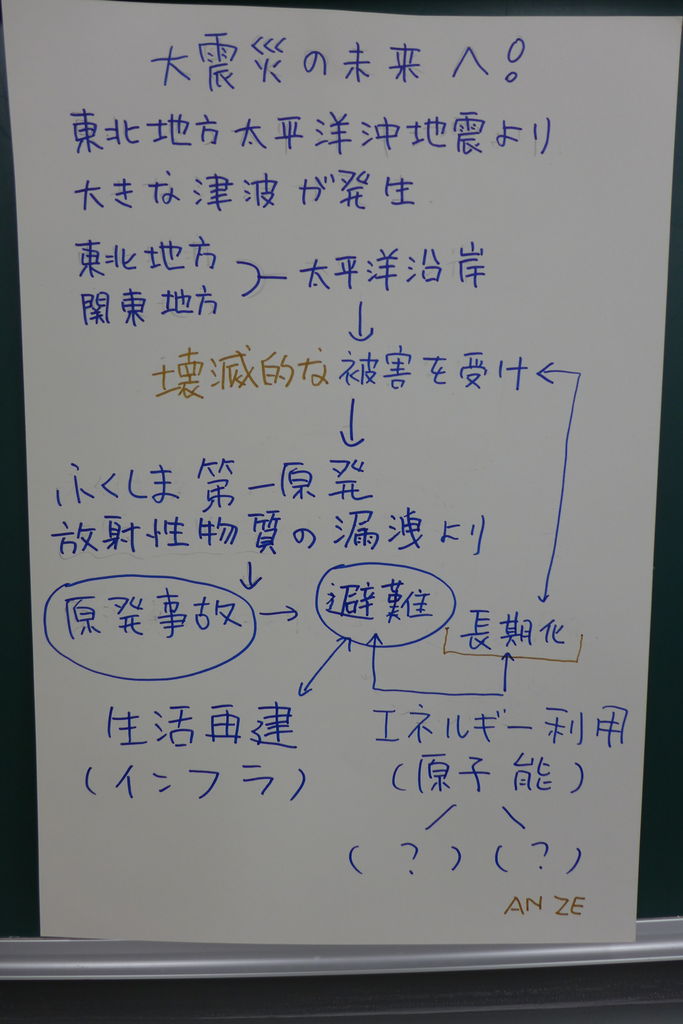 大震災の未来へ!
東北地方太平洋沖地震より
大きな津波が発生
東北地方
関東地方
太平洋沿岸
壊滅的な被害を受け
ふくしま第一原発
放射性物質の漏洩より
原発事故 → 避難
長期化
生活再建
(インフラ)
エネルギー利用
(原子能)
(?) (?)
AN ZE